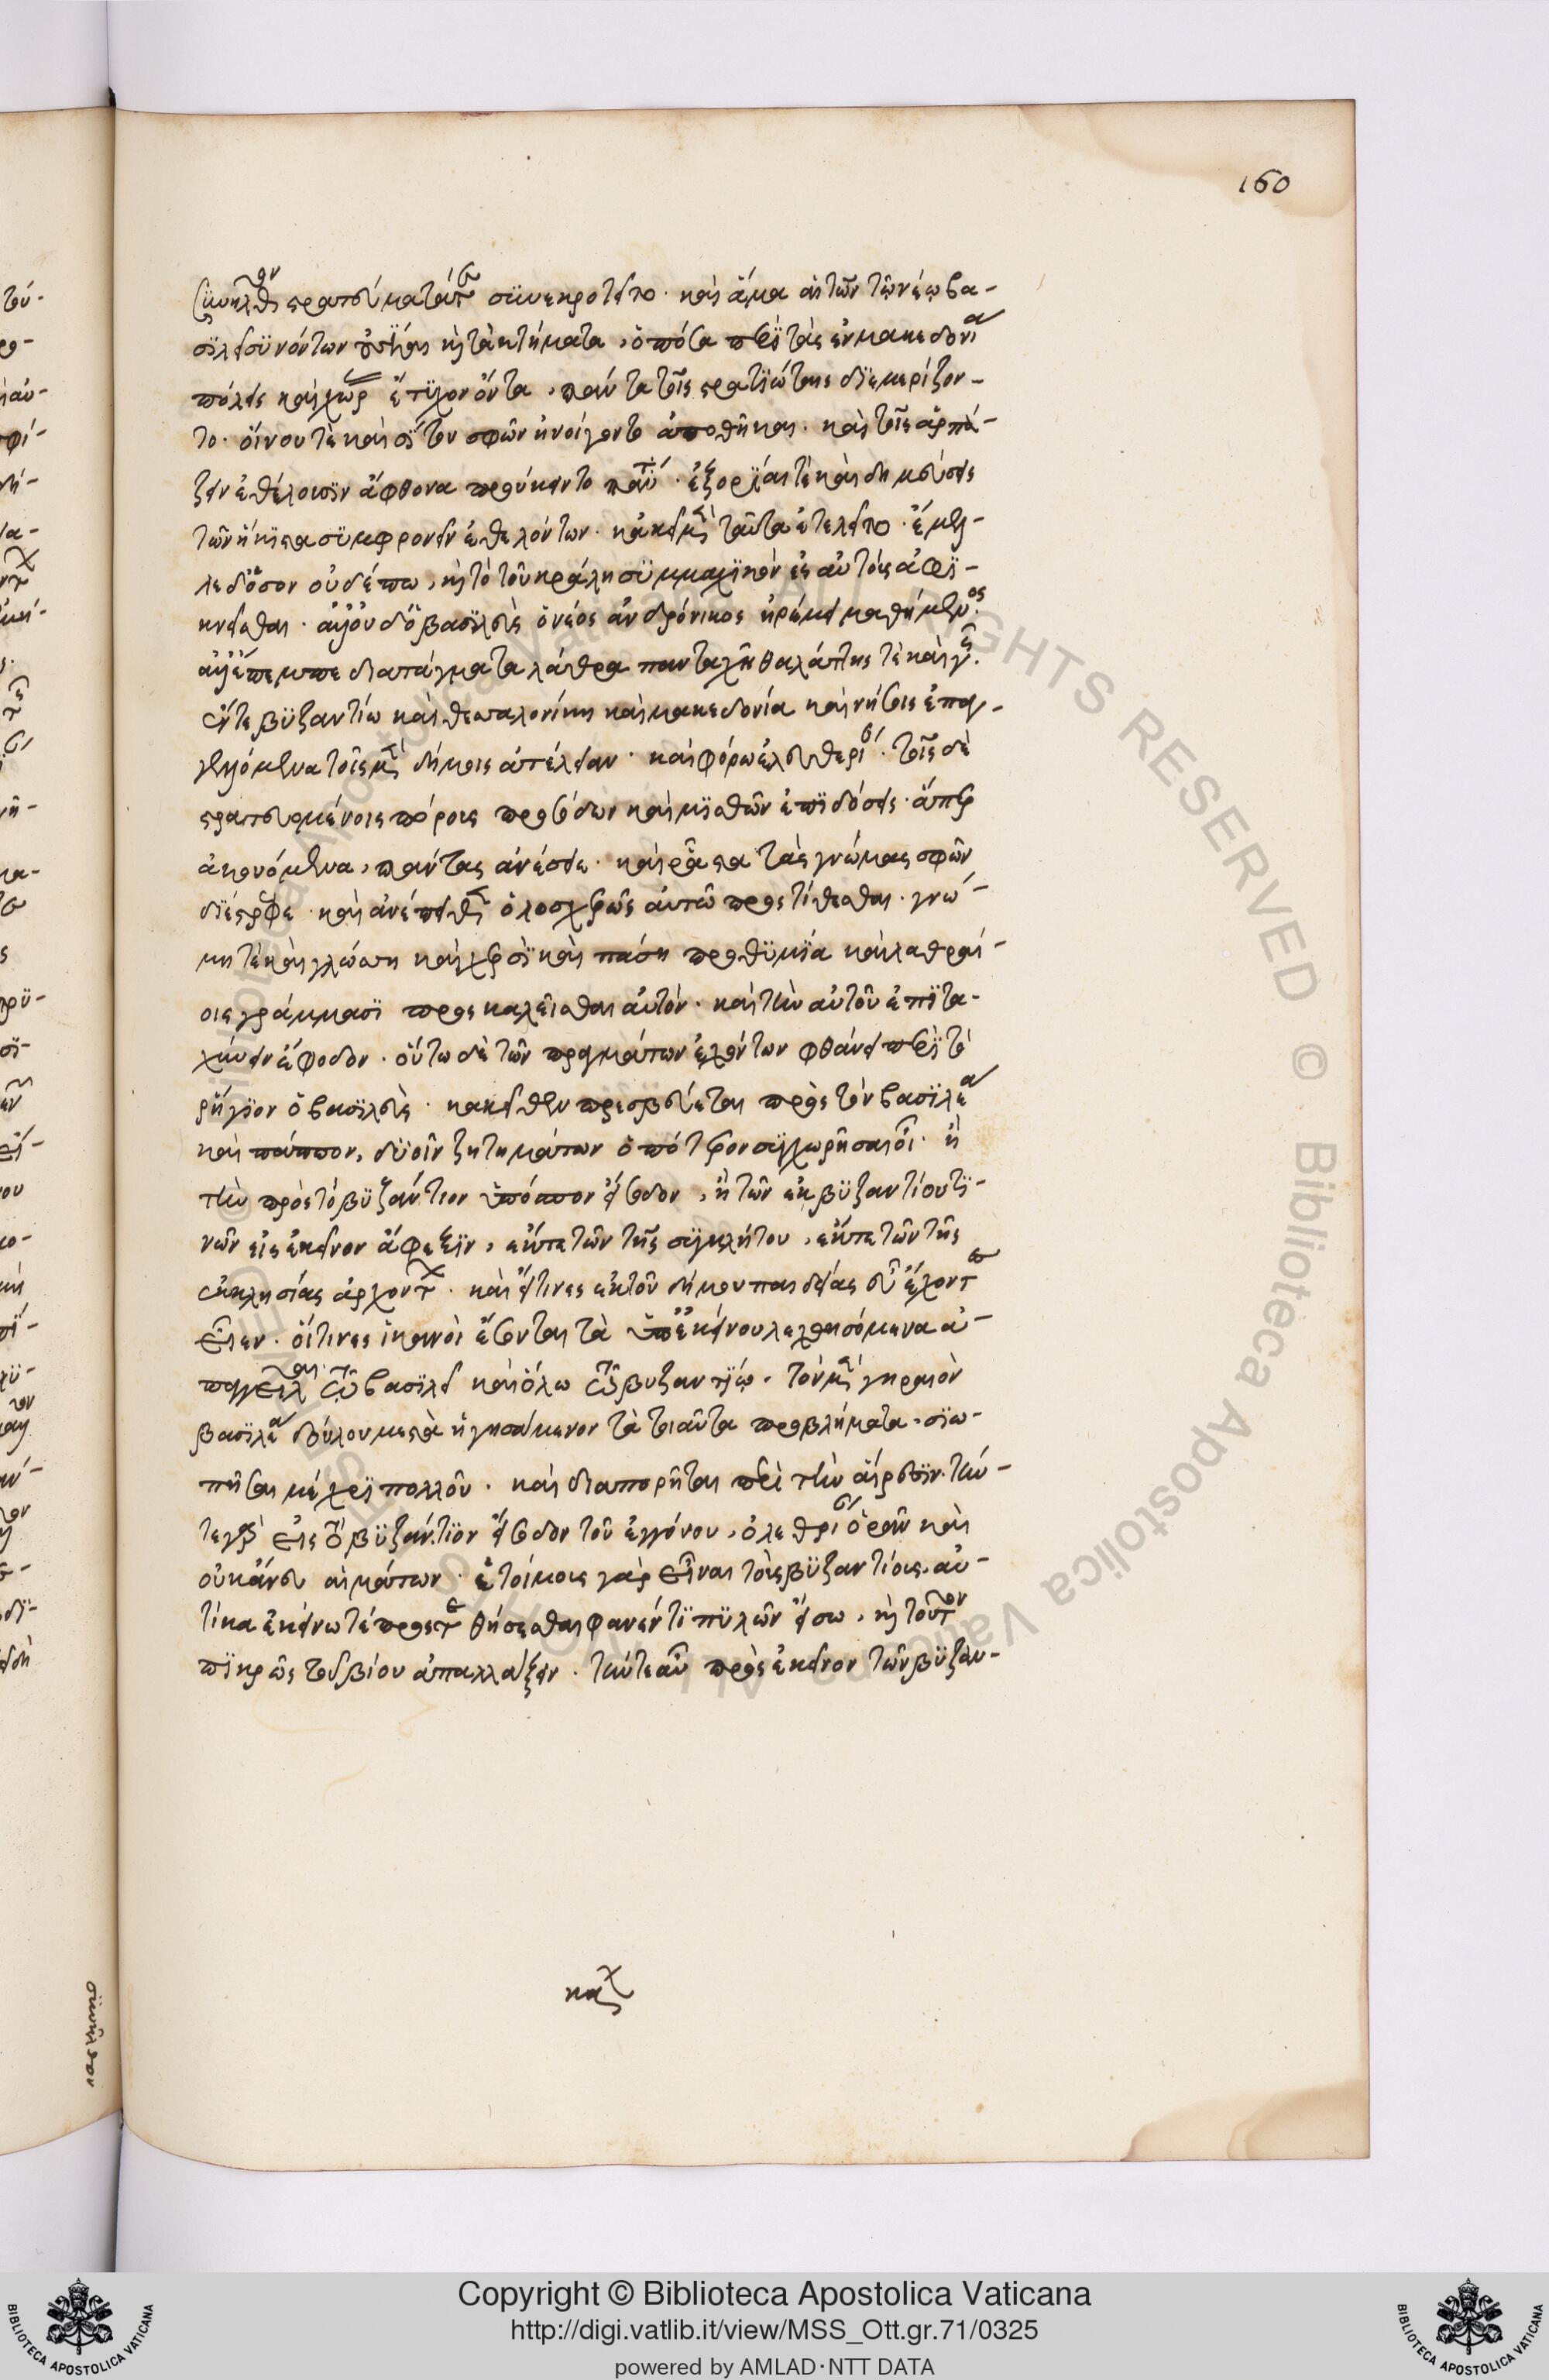 συνῆλθον στρατεύματά τε συνεκροτεῖτο· καὶ ἅμα αἱ τῶν τῷ νέῳ βα-
σιλεῖ συνόντων οὐσίαι καὶ τὰ κτήματα, ὁπόσα περὶ τὰς ἐν μακεδονία
πόλεις καὶ χώρας ἔτυχον ὄντα, πάντα τοῖς στρατιώταις διεμερίζον-
το· οἴνου τὲ καὶ σίτου σφῶν ἠνοίγοντο ἀποθῆκαι· καὶ τοῖς ἁρπά-
ζειν ἐθέλουσιν ἄφθονα προύκειντο πάντα· ἐξορίαι τὲ καὶ δημεύσεις
τῶν ἥκιστα συμφρονεῖν ἐθελόντων· κἀκεῖ μὲν ταῦτα ἐτελεῖτο· ἔμελ-
λε δ' ὅσον οὐδέπω, καὶ τὸ τοῦ κράλη συμμαχικὸν ἐς αὐτοὺς ἀφι-
κνεῖσθαι· ἀλλ' οὐδ' ὁ βασιλεὺς ὁ νέος ἀνδρόνικος ἠρέμει καθήμενος·
ἀλλ' ἔπεμπε διατάγματα λάθρα πανταχῆ θαλάττης τὲ καὶ γῆς·
ἔν τε βυζαντίω καὶ θεσσαλονίκη καὶ μακεδονία καὶ νήσοις ἐπαγ-
γελλόμενα τοῖς μὲν δήμοις ἀτέλειαν· καὶ φόρων ἐλευθερίαν· τοῖς δὲ
στρατευομένοις πόρους προσόδων καὶ μισθῶν ἐπιδόσεις· ἅπερ
ἀκουόμενα, πάντας ἀνέσειε· καὶ ῥᾶστα τὰς γνώμας σφῶν
διέστρεφε· καὶ ἀνέπειθεν ὁλοσχερῶς αὐτῶ προστίθεσθαι· γνώ-
μη τὲ καὶ γλώσση καὶ χερσὶ καὶ πάση προθυμία καὶ λαθραί-
οις γράμμασι προσκαλεῖσθαι αὐτόν· καὶ τὴν αὐτοῦ ἐπιτα-
χύνειν ἔφοδον· οὕτω δὲ τῶν πραγμάτων ἐχόντων φθάνει περὶ τὸ
ῥήγιον ὁ βασιλεὺς· κἀκεῖθεν πρεσβεύεται πρὸς τὸν βασιλέα
καὶ πάππον, δυοῖν ζητημάτων ὁπότερον συγχωρῆσαι οἱ· ἢ
τὴν πρὸς τὸ βυζάντιον ὑπόσπονδον εἴσοδον, ἢ τῶν ἐκ βυζαντίου τι-
νῶν εἰς ἐκεῖνον ἄφιξιν, ἔκ τε τῶν τῆς συγκλήτου, ἔκ τε τῶν τῆς
ἐκκλησίας ἀρχόντων· καὶ εἴ τινες ἐκ τοῦ δήμου παιδείας εὖ ἔχοντες
εἶεν· οἵτινες ἱκανοὶ ἔσονται τὰ ὑπ' ἐκείνου λεχθησόμενα ἀ-
παγγεῖλαι τῶ βασιλεῖ καὶ ὅλω τῶ βυζαντίω· τὸν μὲν γηραιὸν
βασιλέα δύλου μεστὰ ἡγησάμενον τὰ τοιαῦτα προβλήματα, σιω-
πῆσαι μέχρι πολλοῦ· καὶ διαπορῆσαι περὶ τὴν αἵρεσιν· τήν
τε γὰρ εἰς τὸ βυζάντιον εἴσοδον τοῦ ἐγγόνου, ὀλέθριον ὁρᾶν καὶ
οὐκ ἄνευ αἱμάτων· ἑτοίμους γὰρ εἶναι τοὺς βυζαντίους αὐ-
τίκα ἐκείνω τέ προστεθήσεσθαι φανέντι πυλῶν εἴσω, καὶ τοῦτον
πικρῶς τοῦ βίου ἀπαλλάξειν· τήν τε αὖ πρὸς ἐκεῖνον τῶν βυζαν-
160
συνῆλθον
Copyright © Biblioteca Apostolica Vaticana
http://digi.vatlib.it/view/MSS_Ott.gr.71/0325
powered by AMLAD·NTT DATA
BIBLIOTECA APOSTOLICA VATICANA
BIBLIOTECA APOSTOLICA VATICANA